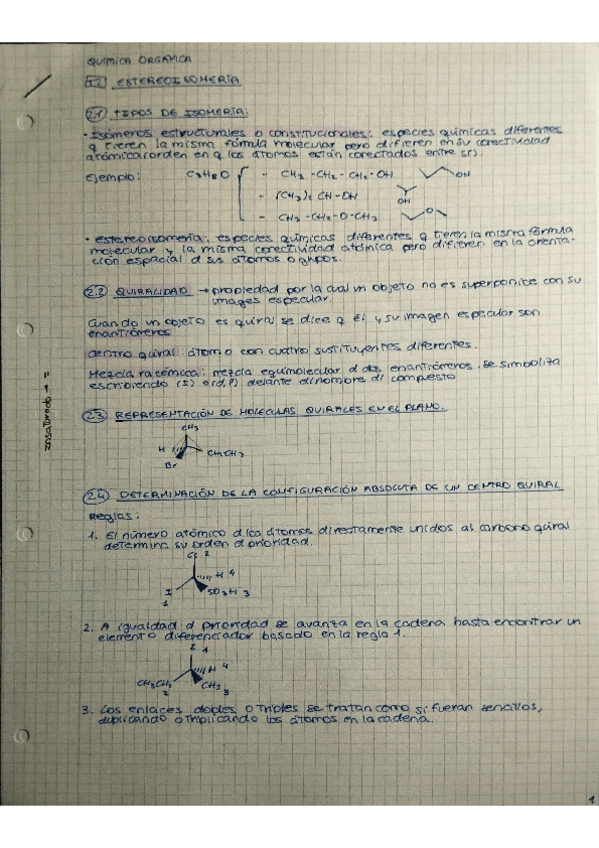 QUÍMICA ORGÁNICA
T2 ESTEREOISOMERÍA
2.1 TIPOS DE ISOMERÍA:
• Isómeros estructurales o constitucionales: especies químicas diferentes
q tienen la misma fórmula molecular pero difieren en su conectividad
atómica (orden en q los átomos están conectados entre sí).
Ejemplo: C3H8O
- CH3-CH2-CH2-OH OH
- (CH3)2 CH-OH OH
- CH3-CH2-O-CH3 O
• estereoisomería: especies químicas diferentes q tienen la misma fórmula
molecular y la misma conectividad atómica pero difieren en la orienta-
ción espacial d sus átomos o grupos.
2.2 QUIRALIDAD → propiedad por la cual un objeto no es superponible con su
imagen especular.
Cuando un objeto es quiral se dice q él y su imagen especular son
enantiómeros
centro quiral: átomo con cuatro sustituyentes diferentes.
Mezcla racémica: mezcla equimolecular d dos enantiómeros. Se simboliza
escribiendo (±) o (d,l) delante d nombre d compuesto
insaturado → =
2.3 REPRESENTACIÓN DE MOLECULAS QUIRALES EN EL PLANO.
CH3
H
CH2CH3
Br
2.4 DETERMINACIÓN DE LA CONFIGURACIÓN ABSOLUTA DE UN CENTRO QUIRAL
Reglas:
1. El número atómico d los átomos directamente unidos al carbono quiral
determina su orden d prioridad.
Cl 2
H 4
I
SO3H 3
1
2. A igualdad d prioridad se avanza en la cadena hasta encontrar un
elemento diferenciador basado en la regla 1.
I 1
H 4
CH3CH2
CH3
2
3
3. Los enlaces dobles o triples se tratan como si fueran sencillos,
duplicando o triplicando los átomos en la cadena.
1